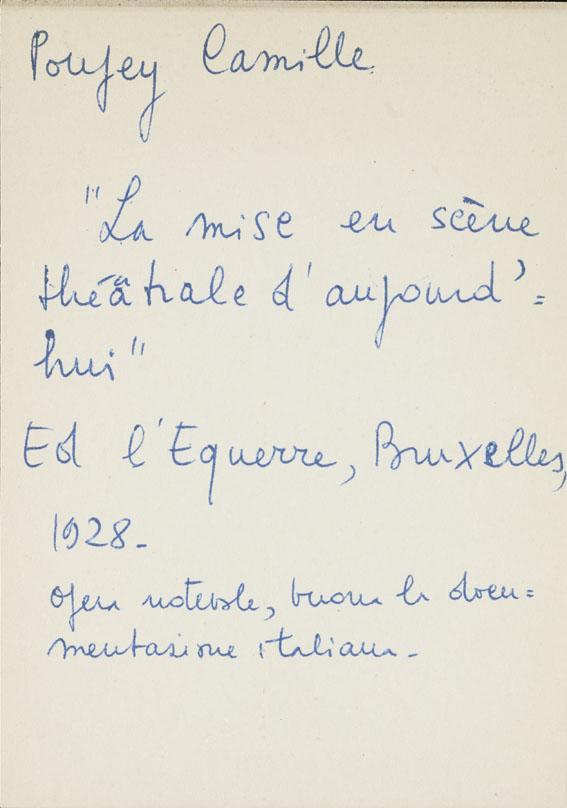 Poupey Camille.
"La mise en scène
théâtrale d'aujourd'=
hui"
Ed l'Equerre, Bruxelles,
1928-
opera notevole, buona la docu=
mentazione italiana-